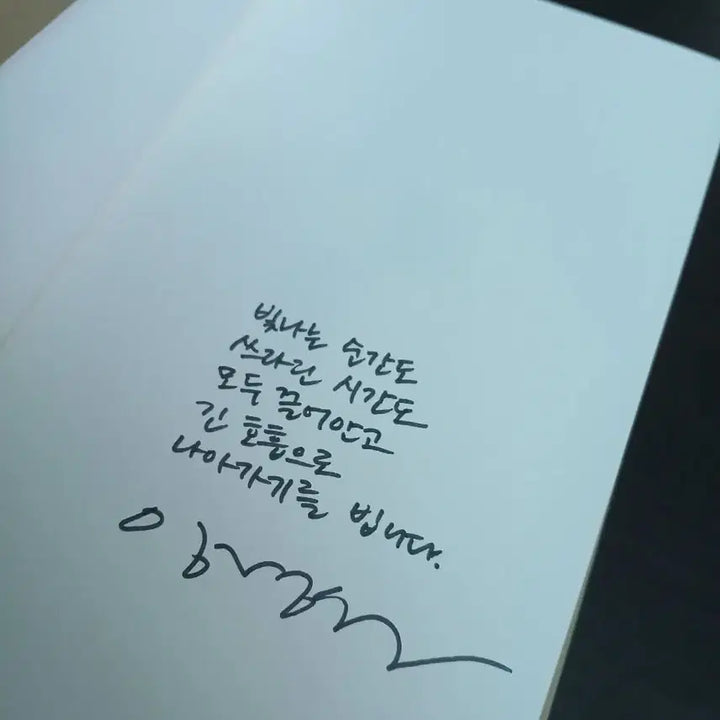 빛나는 순간도
쓰라린 시간도
모두 끌어안고
긴 호흡으로
나아가기를 빕니다.